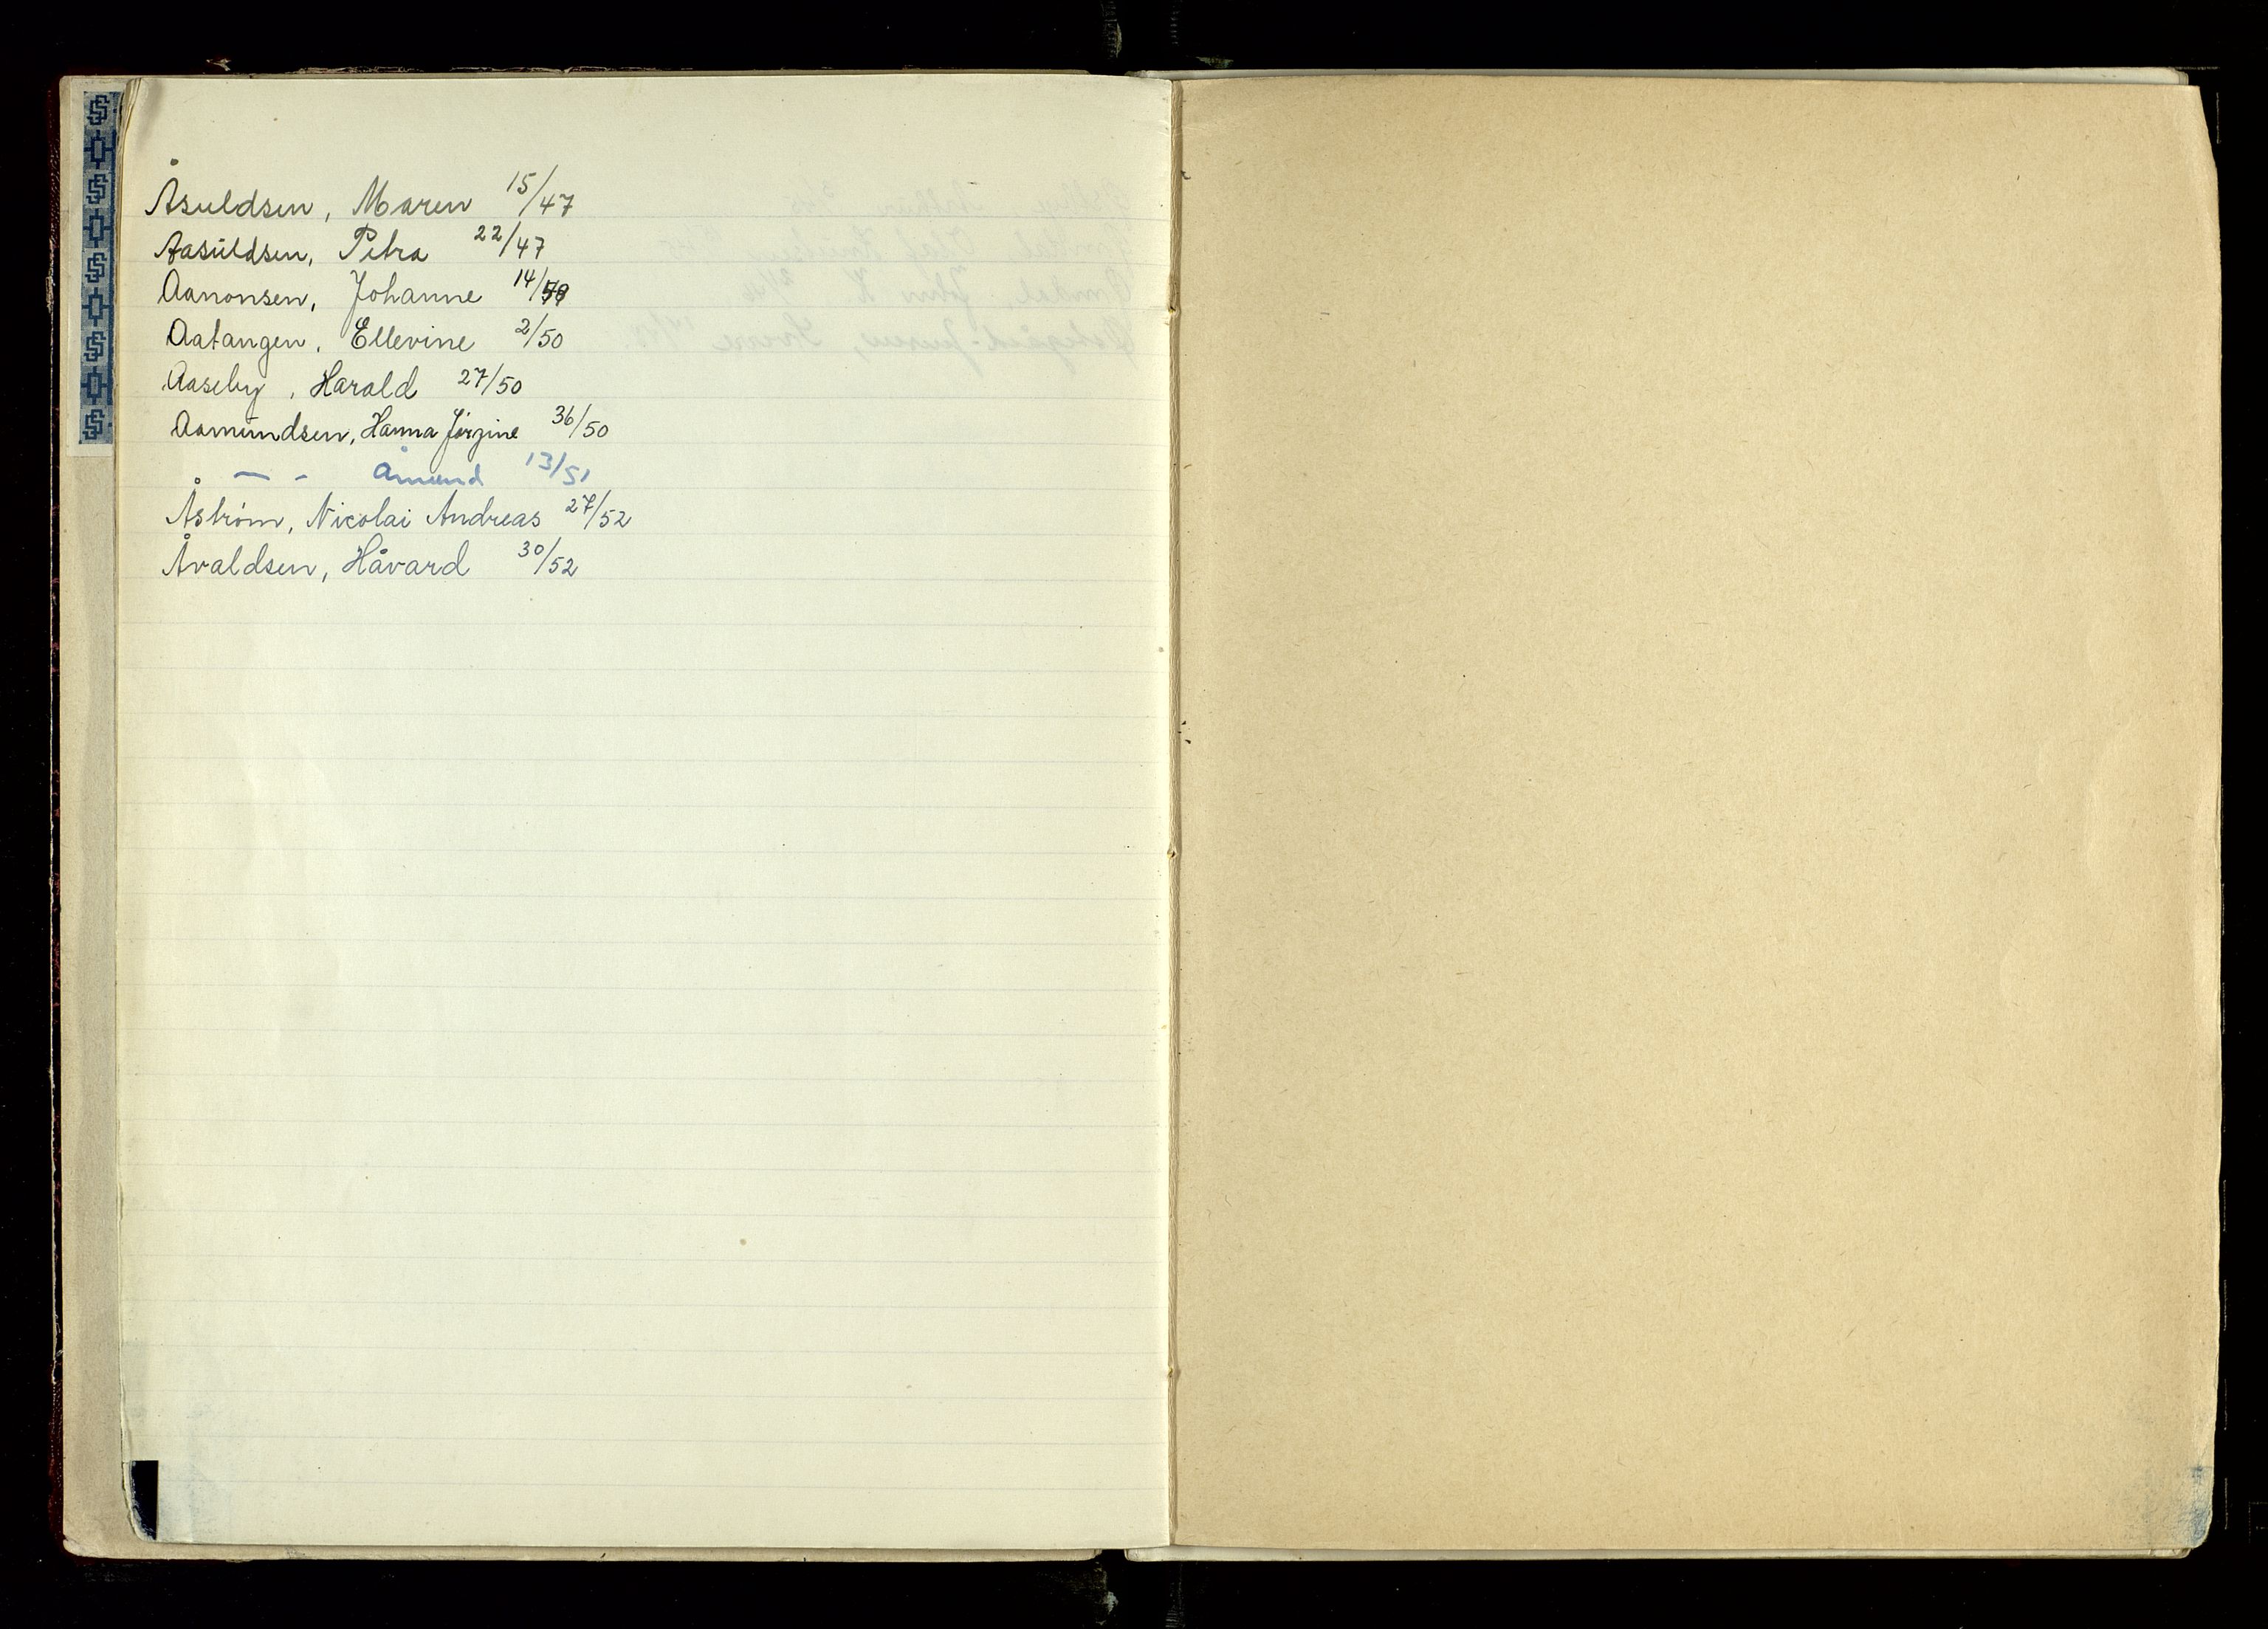 Åsuldsen, Maren 15/47
Aasuldsen, Petra 22/47
Aanonsen, Johanne 14/49
Aatangen, Ellevine 2/50
Aaseby, Harald 27/50
Aamundsen, Hanna Jörgine 36/50
— - Åmund 13/51
Åström, Nicolai Andreas 27/52
Åvaldsen, Håvard 30/52